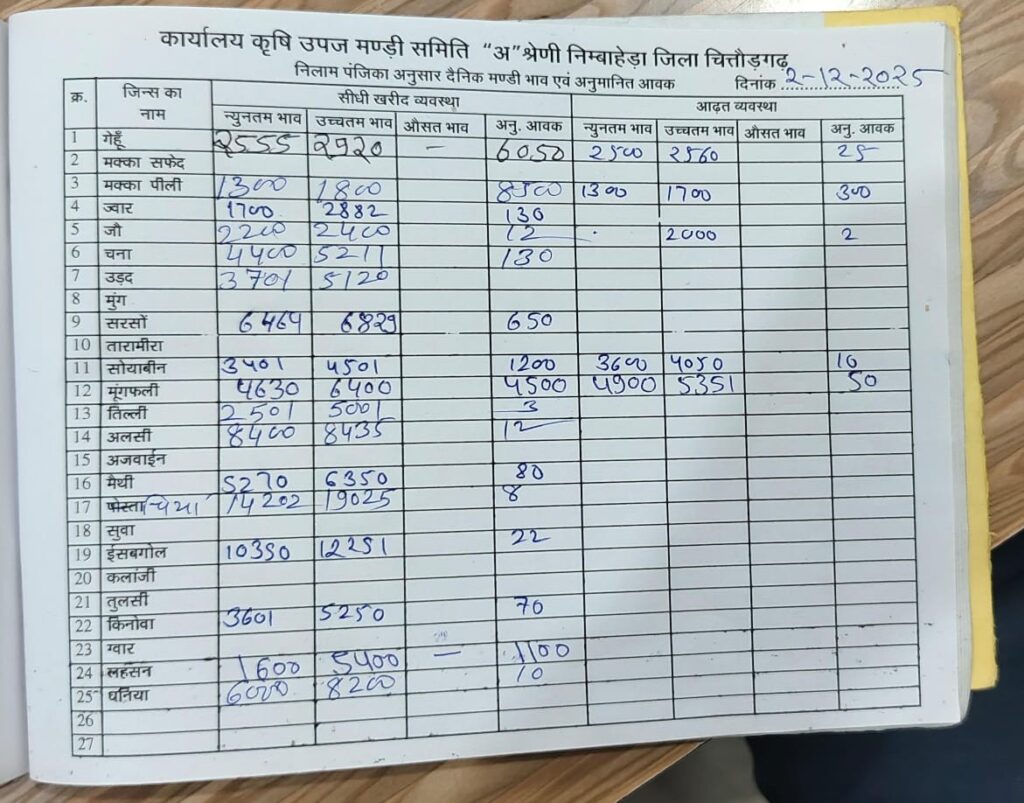 कार्यालय कृषि उपज मण्डी समिति "अ" श्रेणी निम्बाहेड़ा जिला चित्तौड़गढ़
निलाम पंजिका अनुसार दैनिक मण्डी भाव एवं अनुमानित आवक दिनांक 2-12-2025
क्र. जिन्स का नाम सीधी खरीद व्यवस्था आढ़त व्यवस्था
न्युनतम भाव उच्चतम भाव औसत भाव अनु. आवक न्युनतम भाव उच्चतम भाव औसत भाव अनु. आवक
1 गेहूँ 2555 2920 — 6050 2500 2560 25
2 मक्का सफेद
3 मक्का पीली 1300 1800 8500 1300 1700 300
4 ज्वार 1700 2882 130
5 जौ 2200 2400 12 2000 2
6 चना 4400 5211 130
7 उड़द 3701 5120
8 मुंग
9 सरसों 6464 6829 650
10 तारामीरा
11 सोयाबीन 3401 4501 1200 3600 4050 10
12 मूंगफली 4630 6400 4500 4900 5351 50
13 तिल्ली 2501 5001 3
14 अलसी 8400 8435 12
15 अजवाईन
16 मैथी 5270 6350 80
17 14202 19025 8
18 सुवा
19 ईसबगोल 10350 12251 22
20 कलांजी
21 तुलसी
22 किनोवा 3601 5250 70
23 ग्वार
24 लहसन 1600 5400 — 1100
25 धनिया 6000 8200 10
26
27